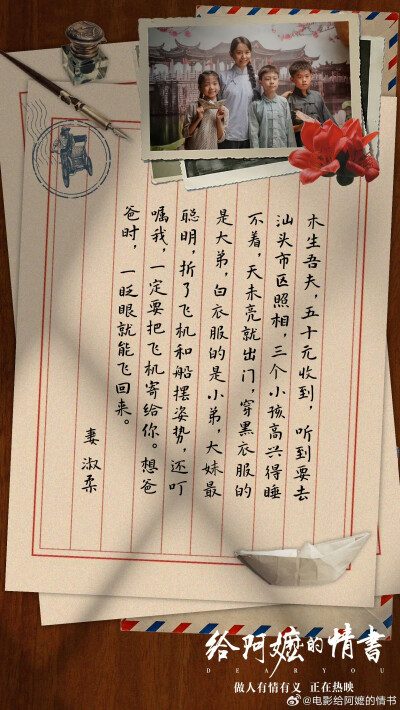 木生吾夫，五十元收到，听到要去
汕头市区照相，三个小孩高兴得睡
不着，天未亮就出门，穿黑衣服的
是大弟，白衣服的是小弟，大妹最
聪明，折了飞机和船摆姿势，还叮
嘱我，一定要把飞机寄给你。想爸
爸时，一眨眼就能飞回来。
妻 淑柔
给阿嬷的情書
DEAR YOU
做人有情有义 正在热映
@电影给阿嬷的情书